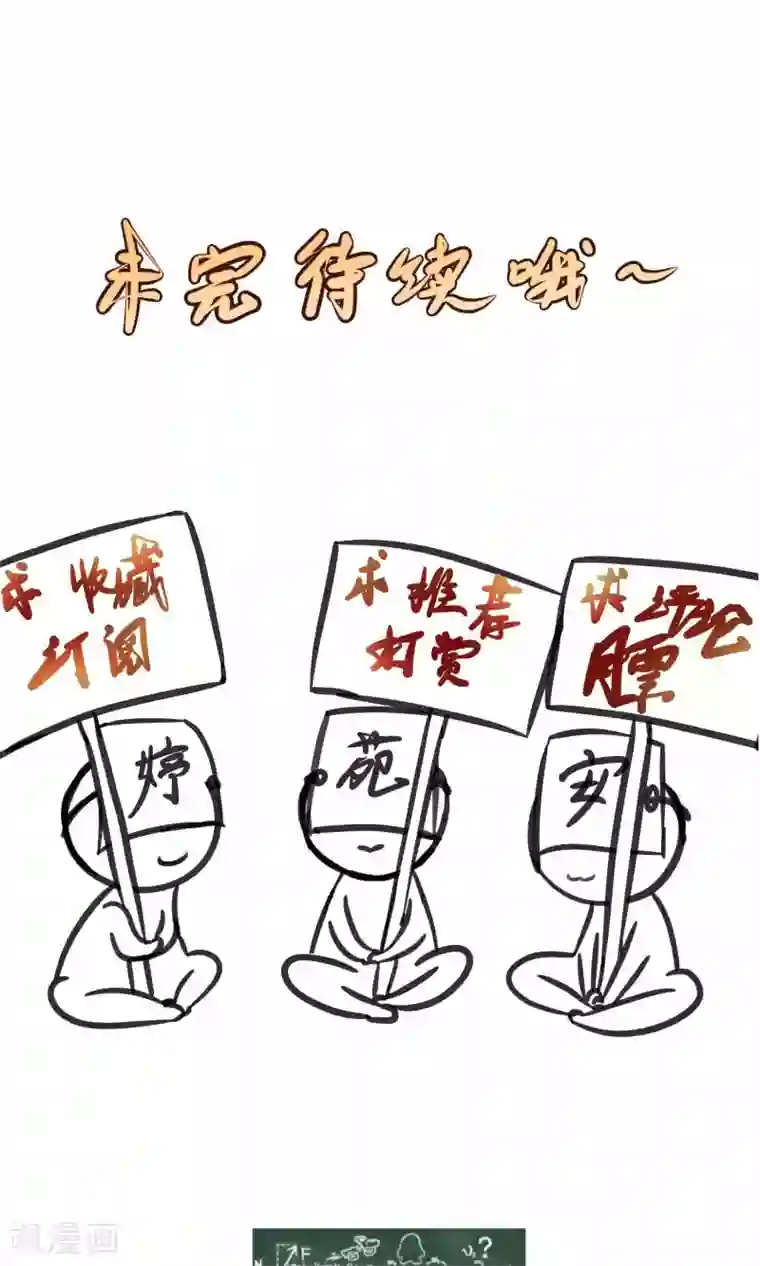 未完待续哦~
求收藏
订阅
求推荐
打赏
求评论
膘
婷
苑
安
飒漫画
F
U₁?